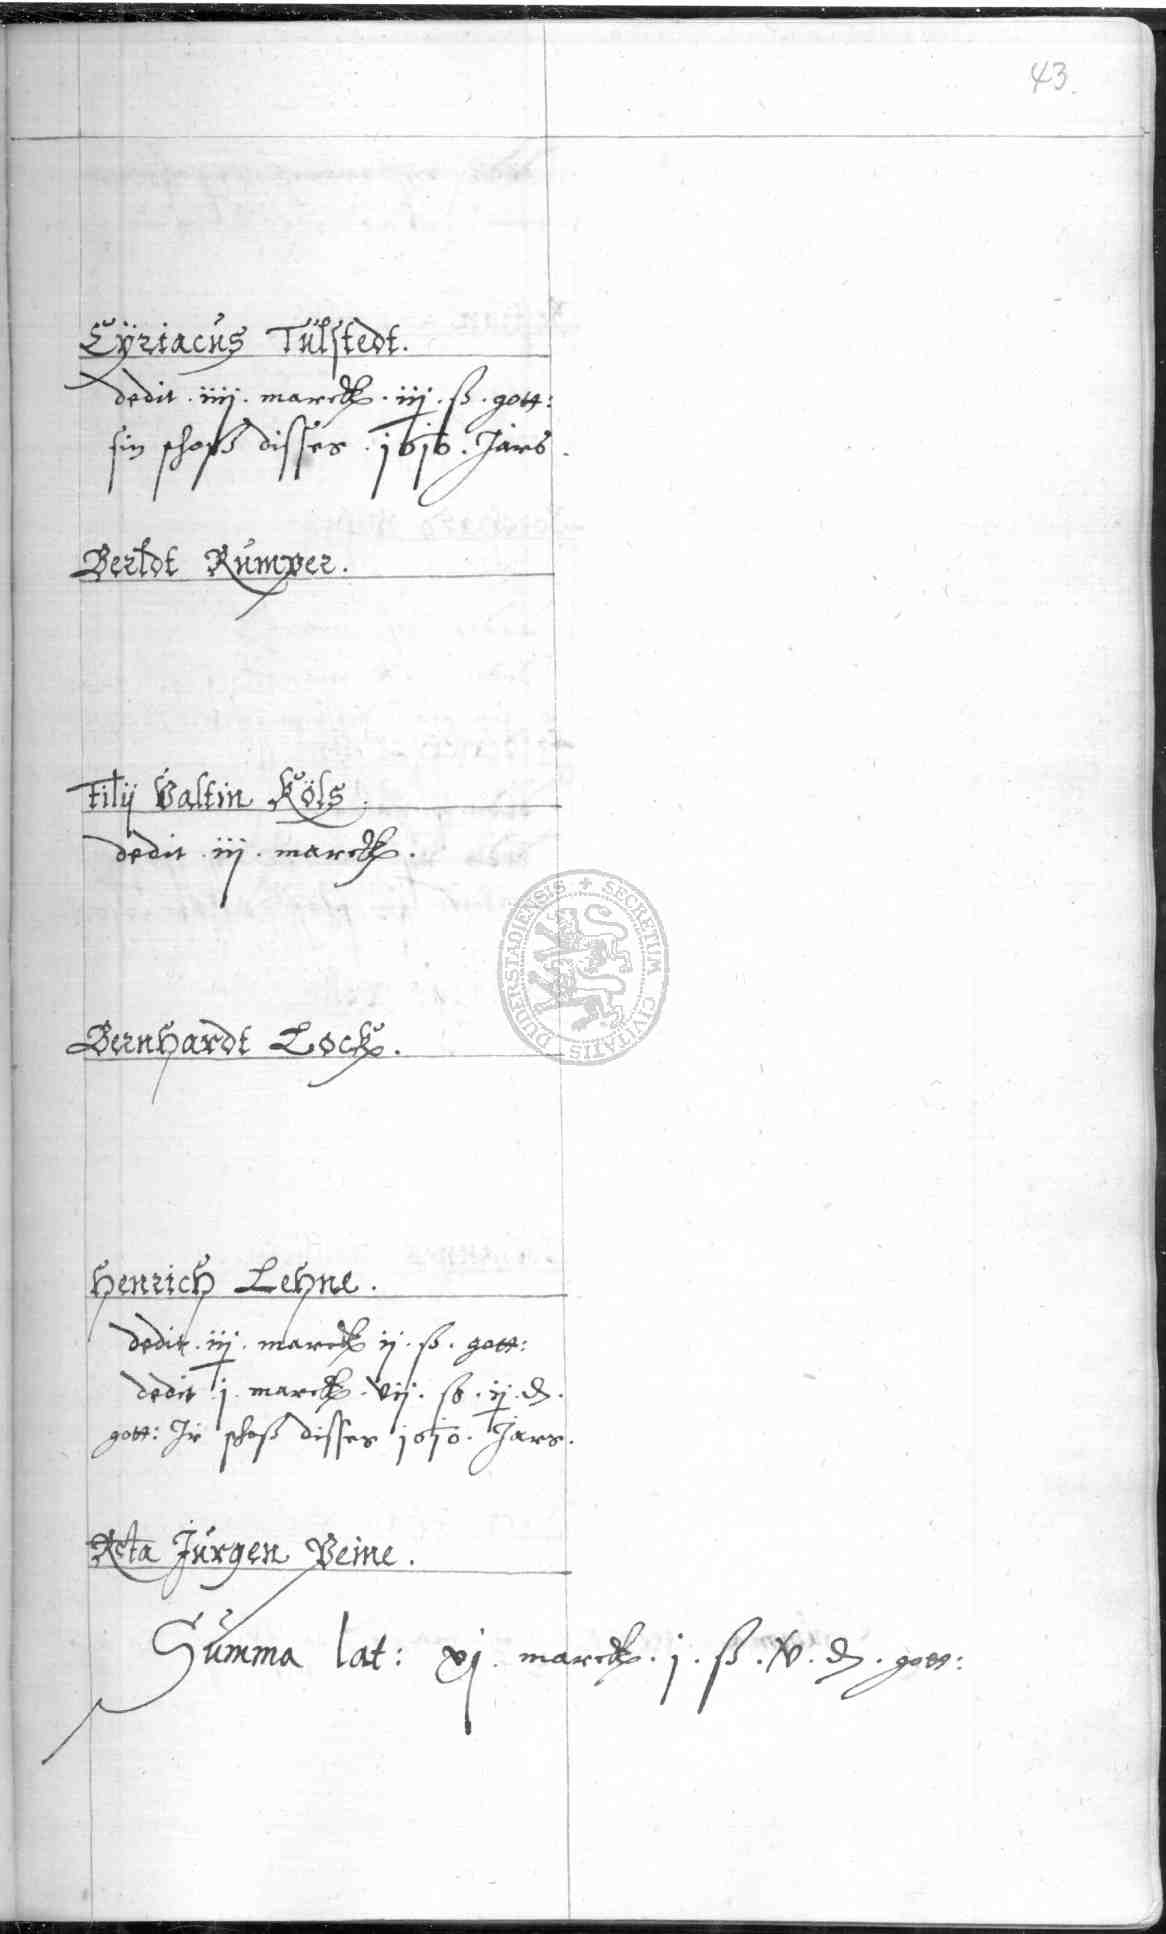 43.
Cÿriacus Tulstedt.
dedit . iiij . marck . iij . ß . gott:
sin schoß disses . 1610 . Jars .
Bertdt Rumper.
Filij Valtin Köls .
dedit . iij . marck .
Bernhardt Lock .
Henrich Lehne .
dedit . iij . marck ij . ß . gott:
dedit . j . marck . vij . ß . ij . d .
gott: Jr schoß disses 1610 . Jars .
Jurgen Peine .
Summa lat: xj . marck . j . ß . v . d . gott:
SECRETUM CIVITATIS DUDERSTADIENSIS